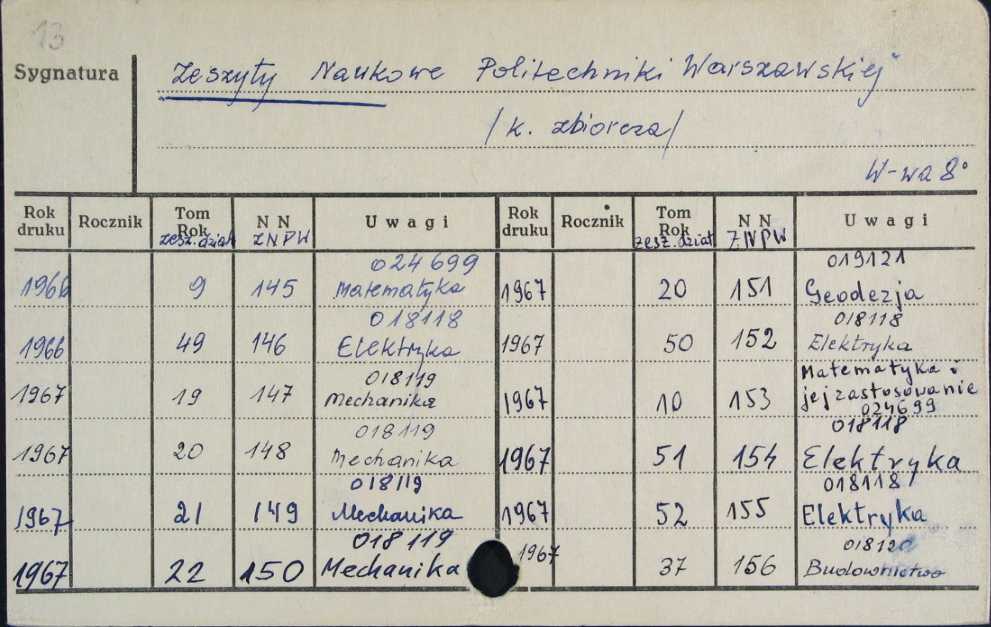 13
Sygnatura
Zeszyty Naukowe Politechniki Warszawskiej
/k. zbiorcza/
W-wa 8°
Rok druku Rocznik Tom Rok zesz. dział N N ZNPW Uwagi Rok druku Rocznik Tom Rok zesz. dział N N ZNPW Uwagi
1966 9 145 024699 Matematyka 1967 20 151 019121 Geodezja
1966 49 146 018118 Elektryka 1967 50 152 018118 Elektryka
1967 19 147 018119 Mechanika 1967 10 153 Matematyka i jej zastosowanie 024699
1967 20 148 018119 Mechanika 1967 51 154 018118 Elektryka
1967 21 149 018119 Mechanika 1967 52 155 018118 Elektryka
1967 22 150 018119 Mechanika 1967 37 156 018120 Budownictwo